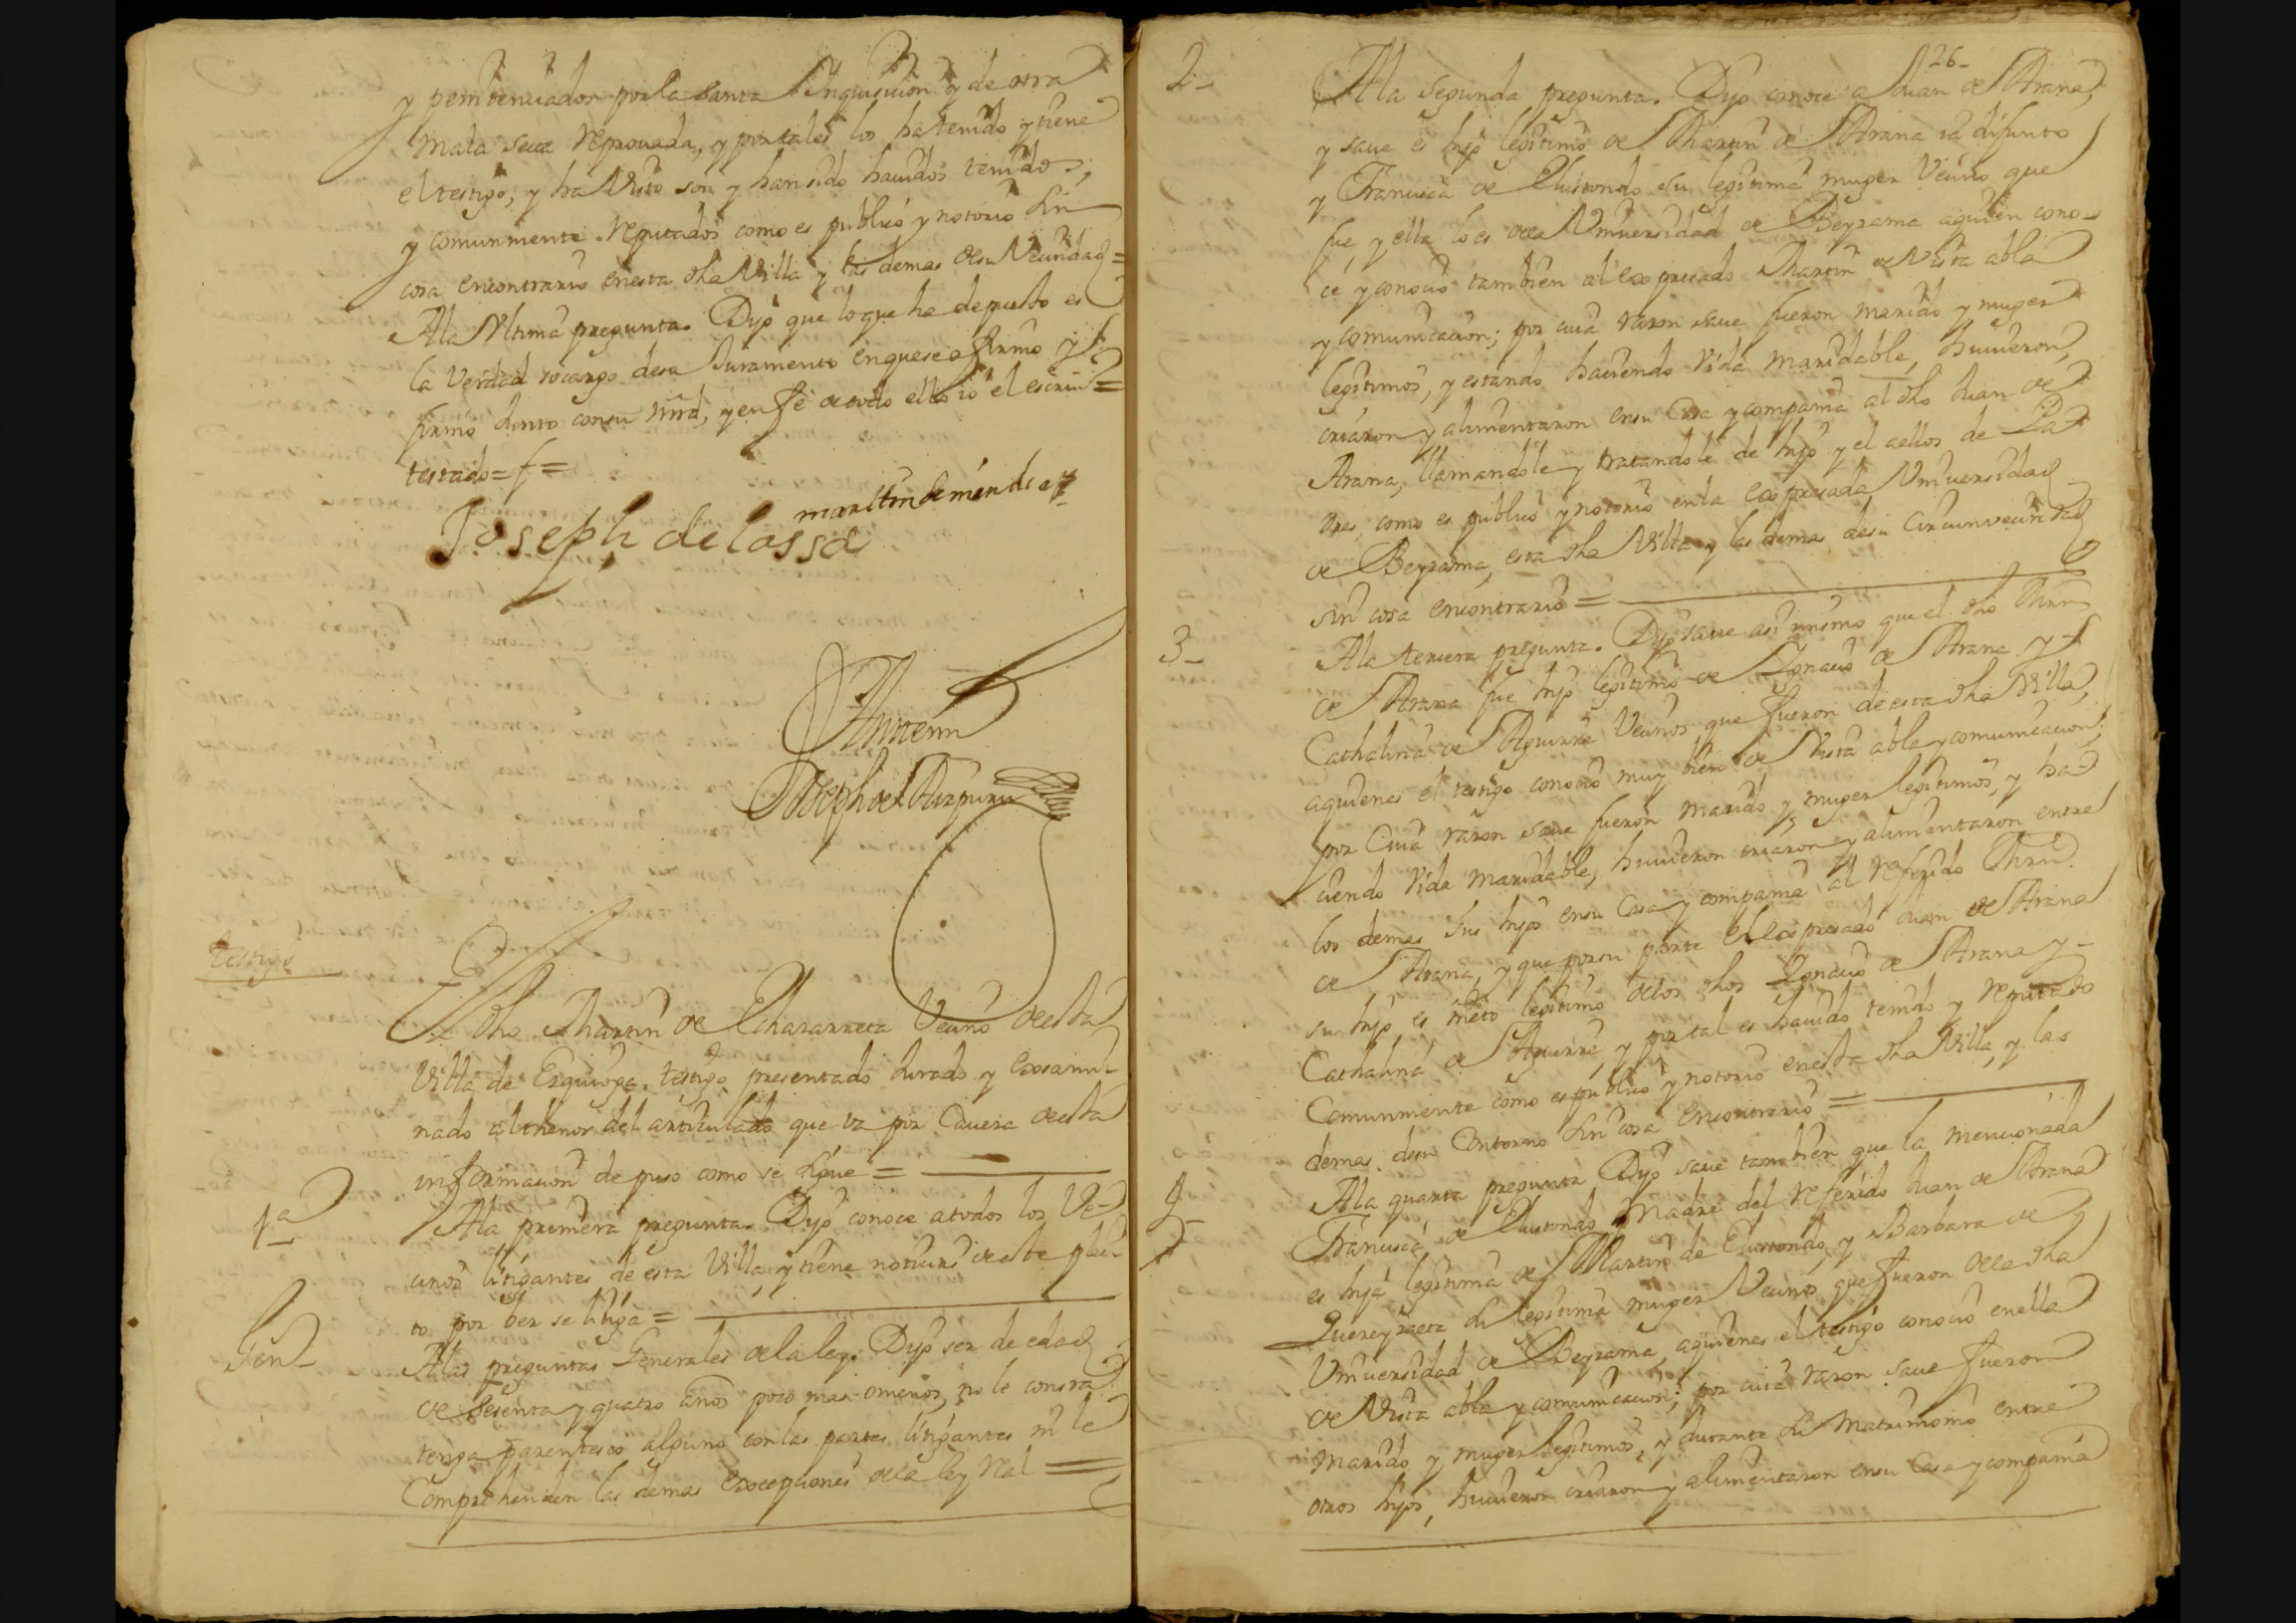 y penitenciados por la santa Inquisicion y de otra
mala seta reprouada, y por tales los ha tenido y tiene
el testigo, y ha visto son y han sido hauidos tenidos,
y comunmente reputados como es publico y notorio sin
cosa encontrario en esta dha Villa y las demas de su Vecindad =
A la Vltima pregunta. Dijo que lo que ha depuesto es
la Verdad so cargo de su Juramento en que se afirmo y
firmo Junto con su mrd, y en fe de todo ello io el escriuno =
testado = f =
martin de mendi
Joseph de lassa
Antemi
Joseph de Aizpuru
testigo
El dho Martin de Echaiarreta Vecino de esta
Villa de Ezquioga testigo presentado Jurado y Exsami-
nado al thenor del articulado que va por Cauesa de esta
informacion depuso como se sigue =
1a
A la primera pregunta. Dijo conoce a todos los Ve-
cinos litigantes de esta Villa, y tiene noticias de este plei-
to por ber se litiga =
Gen-
A las preguntas Generales de la ley. Dijo ser de edad
de sesenta y quatro años poco mas o menos, no le consta
tenga parentesco alguno con las partes litigantes ni le
Comprehenden las demas Exsepciones de la ley Real =
126-
2-
A la segunda pregunta. Dijo conoce a Juan de Arana,
y saue es hijo legitimo de Martin de Arana ia difunto
y Francisca de Elustondo su legitima muger Vecino que
fue, y ella lo es de la Vniuersidad de Beyzama a quien cono-
ce y conocio tambien al expresado Martin de Vista abla
y comunicacion; por cuia razon saue fueron marido y muger
legitimos, y estando haciendo Vida maridable, huuieron,
criaron y alimentaron en su Casa y compania al dho Juan de
Arana, llamandole y tratandole de hijo y el a ellos de Pa-
dres, como es publico y notorio en la Expresada Vniuersidad
de Beyzama, esta dha Villa y las demas de su Circunvecindad
sin cosa encontrario =
3-
A la tercera pregunta. Dijo saue asi mismo que el dho Mrn
de Arana fue hijo legitimo de Ignacio de Arana y
Cathalina de Aguirre Vecinos que fueron de esta dha Villa,
a quienes el testigo conocio muy bien de Vista abla y comunicacion;
por Cuia razon saue fueron marido y muger legitimos, y ha-
ciendo Vida maridable, huuieron criaron y alimentaron entre
los demas sus hijos en su Casa y compania al referido Mrn.
de Arana, y que por su parte el Expresado Juan de Arana
su hijo es nieto legitimo de los dhos Ignacio de Arana y-
Cathalina de Aguirre, y por tal es hauido tenido y reputado
Comunmente como es publico y notorio en esta dha Villa, y las
demas de su Contorno sin cosa encontrario =
4-
A la quarta pregunta Dijo saue tambien que la mencionada
Francisca de Elustondo Madre del referido Juan de Arana
es hija legitima de Martin de Elustondo, y Barbara de
Quereyzaeta su legitima muger Vecinos que fueron de la dha
Vniuersidad de Beyzama a quienes el testigo conocio en ella
de Vista abla y comunicacion; por cuia razon saue fueron
marido y muger legitimos, y durante su Matrimonio entre
otros hijos, huuieron criaron y alimentaron en su Casa y compania